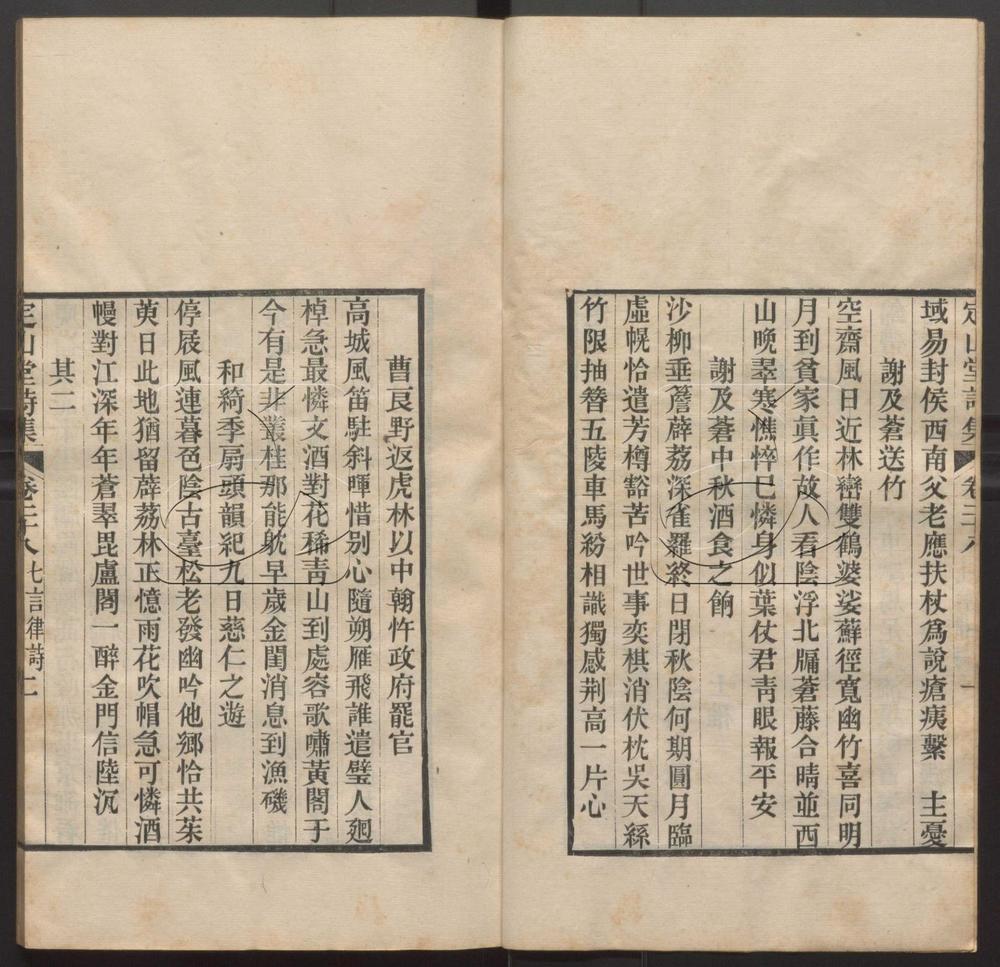 定山堂詩集 卷二十八
域易封侯西南父老應扶杖爲說瘡痍繫 主憂
謝及蒼送竹
空齋風日近林巒雙鶴婆娑蘚徑寬幽竹喜同明
月到貧家眞作故人看陰浮北牖蒼藤合晴並西
山晚翠寒憔悴已憐身似葉仗君靑眼報平安
謝及蒼中秋酒食之餉
沙柳垂簷薜荔深雀羅終日閉秋陰何期圓月臨
虛幌恰遣芳樽豁苦吟世事奕棋消伏枕吳天絲
竹限抽簪五陵車馬紛相識獨感荆高一片心
曹良野返虎林以中翰忤政府罷官
高城風笛駐斜暉惜別心隨朔雁飛誰遣璧人廻
棹急最憐文酒對花稀靑山到處容歌嘯黃閣于
今有是非叢桂那能躭早歲金閨消息到漁磯
和綺季扇頭韻紀九日慈仁之遊
停展風連暮色陰古臺松老發幽吟他鄉恰共茱
萸日此地猶留薜荔林正憶雨花吹帽急可憐酒
幔對江深年年蒼翠毘盧閣一醉金門信陸沉
其二
定山堂詩集 卷二十八 七言律詩 二